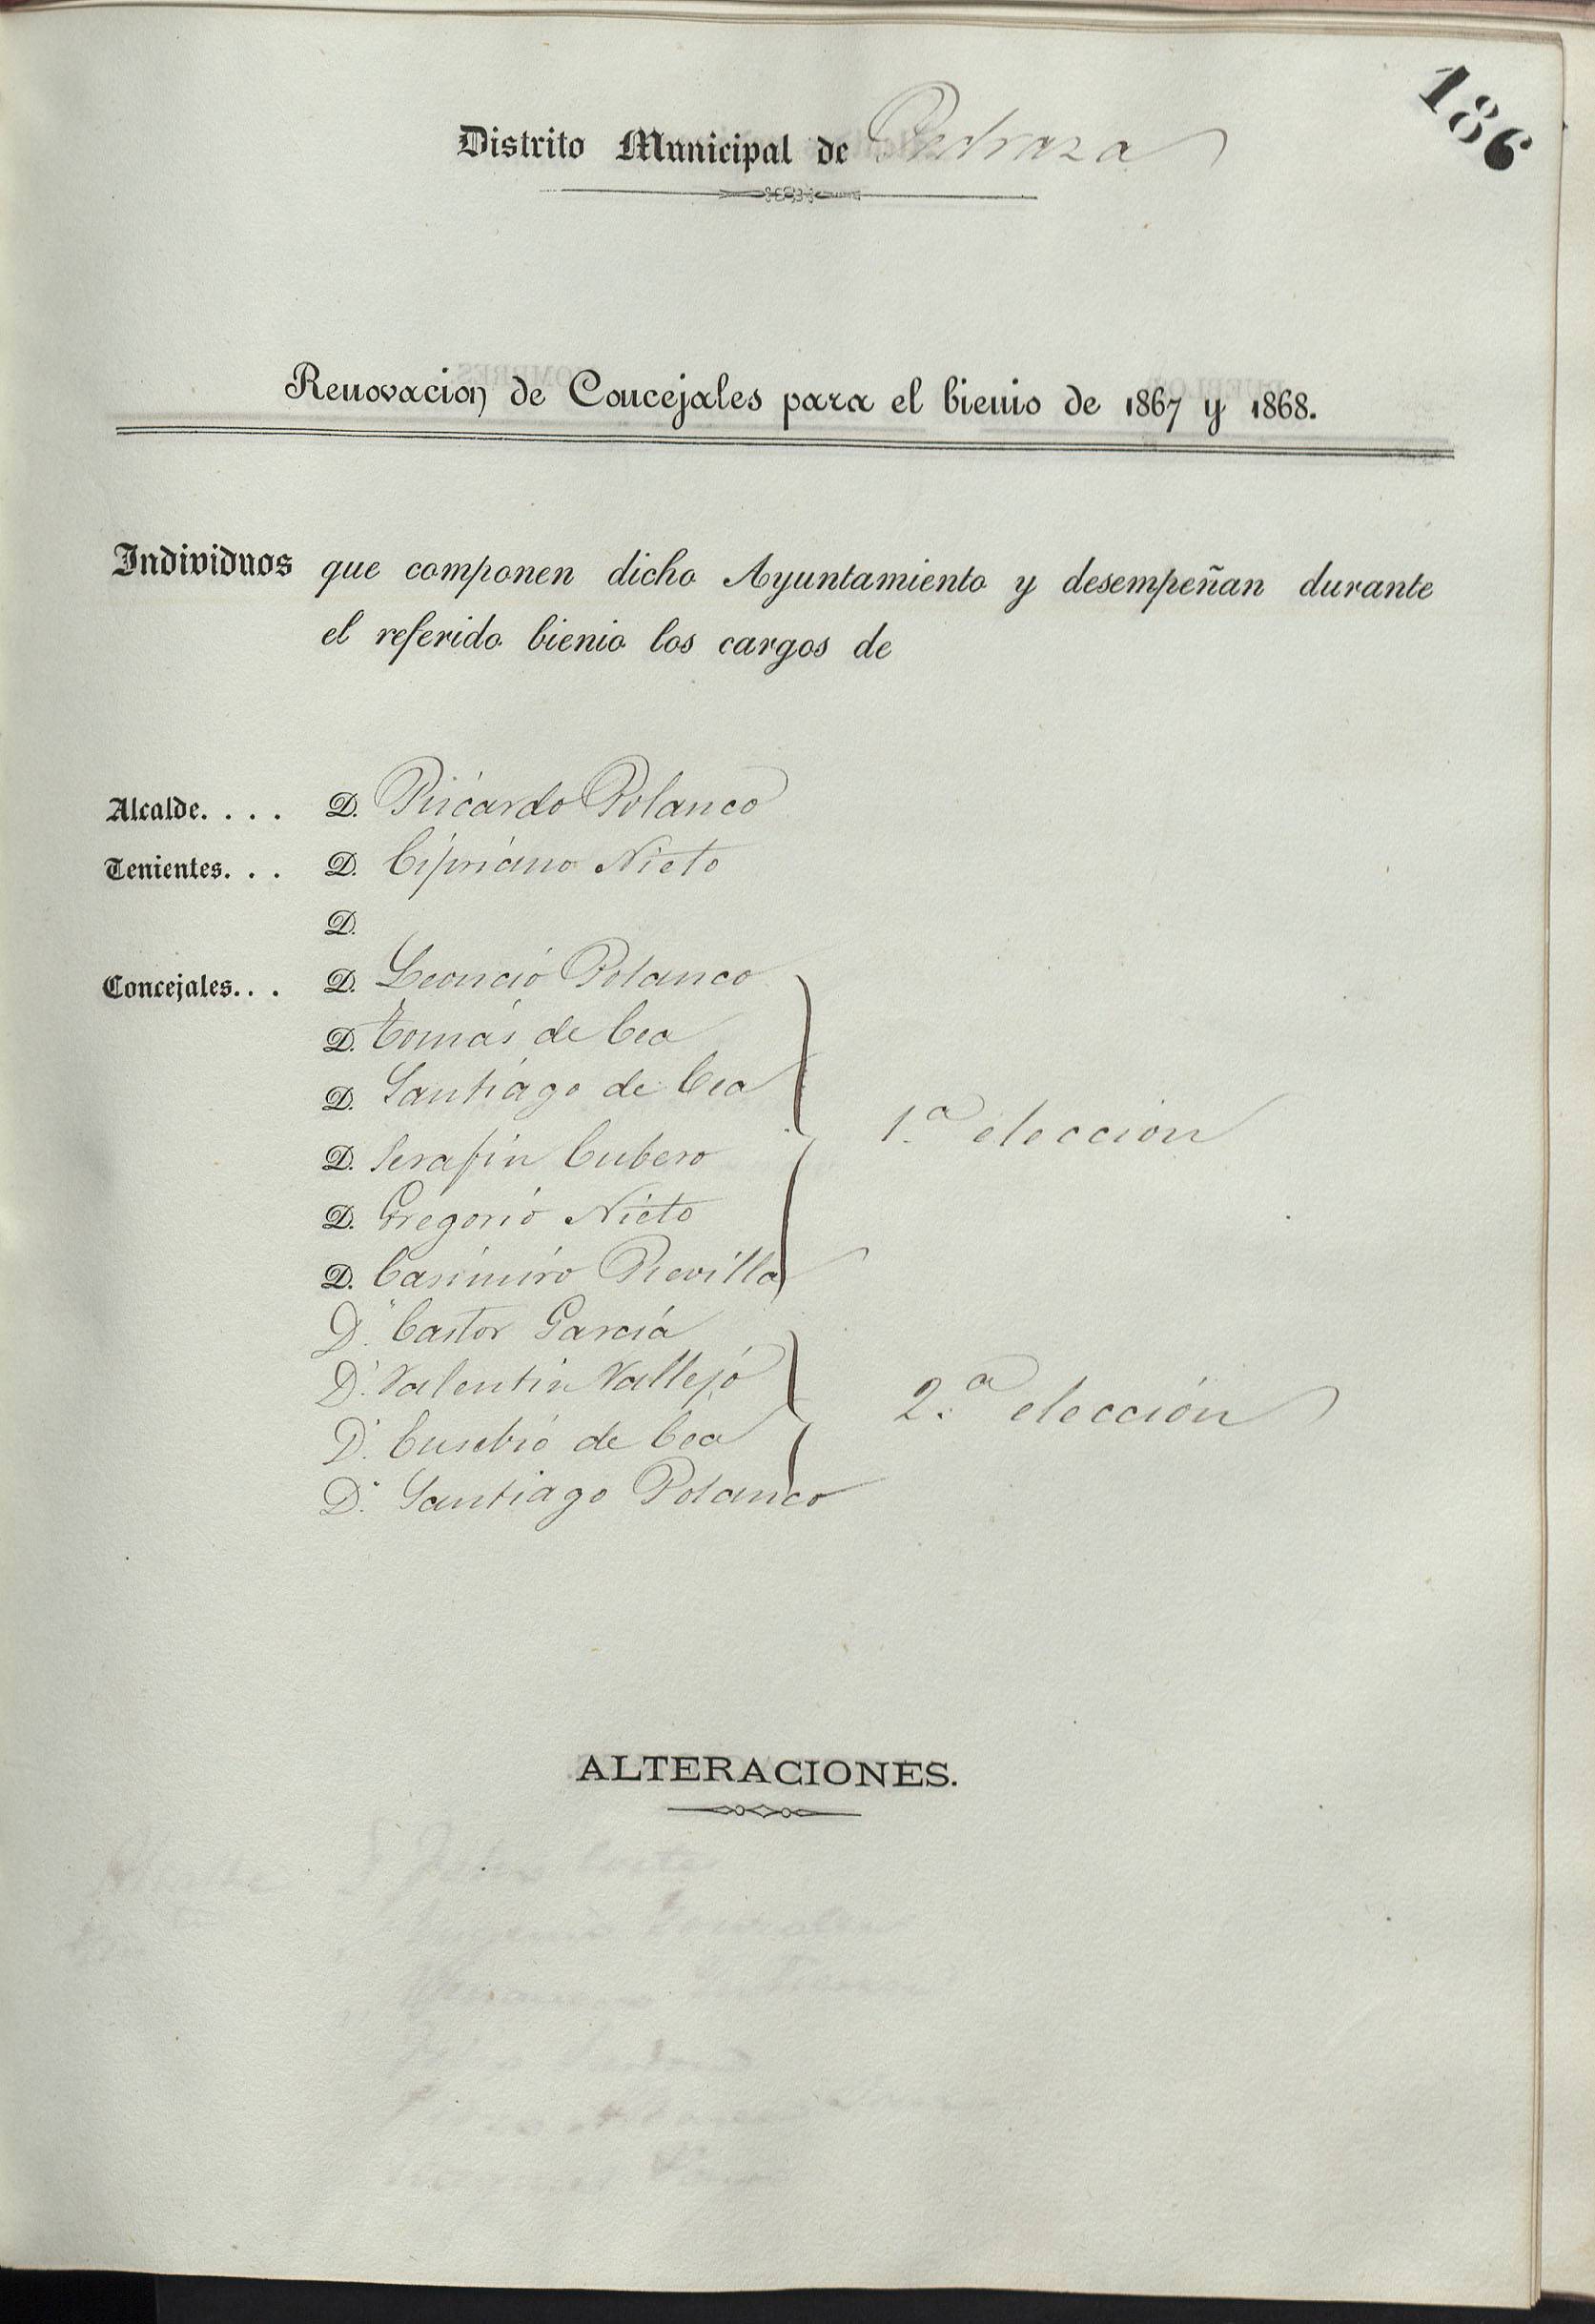 186
Distrito Municipal de Pedraza
Renovacion de Concejales para el bienio de 1867 y 1868.
Individuos que componen dicho Ayuntamiento y desempeñan durante
el referido bienio los cargos de
Alcalde. . . . D. Ricardo Polanco
Tenientes. . . D. Cipriano Nieto
D.
Concejales. . . D. Leoncio Polanco
D. Tomás de Cea
D. Santiago de Cea
D. Serafin Cubero
1.ª eleccion
D. Gregorio Nieto
D. Casimiro Revilla
D. Castor García
D. Valentin Vallejo
2.ª elección
D. Eusebio de Cea
D. Santiago Polanco
ALTERACIONES.